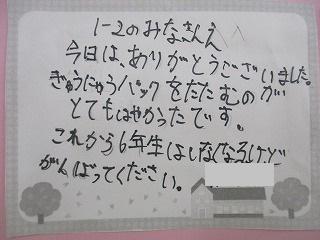 1-2のみなさんえ
今日は、ありがとうございました。
ぎゅうにゅうパックをたたむのが
とてもはやかったです。
これから6年生はしなくなるけど
がんばってください。